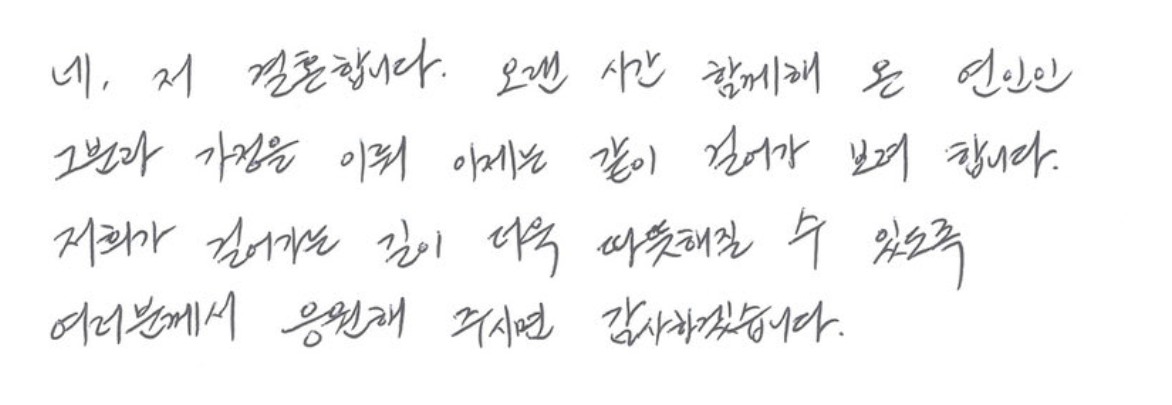 네, 저 결혼합니다. 오랜 시간 함께해 온 연인인
그분과 가정을 이뤄 이제는 같이 걸어가 보려 합니다.
저희가 걸어가는 길이 더욱 따뜻해질 수 있도록
여러분께서 응원해 주시면 감사하겠습니다.